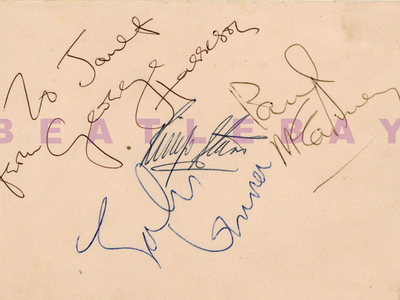 To Janet
from George Harrison
BEATLEBAY
Ringo Starr
Paul
McCartney
John
Lennon